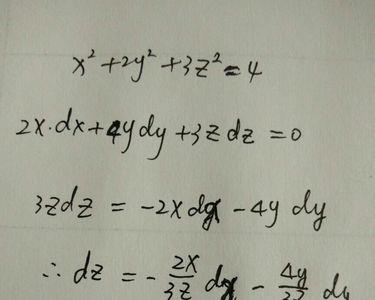 x² + 2y² + 3z² = 4
2x·dx + 4y dy + 3z dz = 0
3z dz = -2x dx - 4y dy
∴ dz = - 2x/3z dx - 4y/3z dy